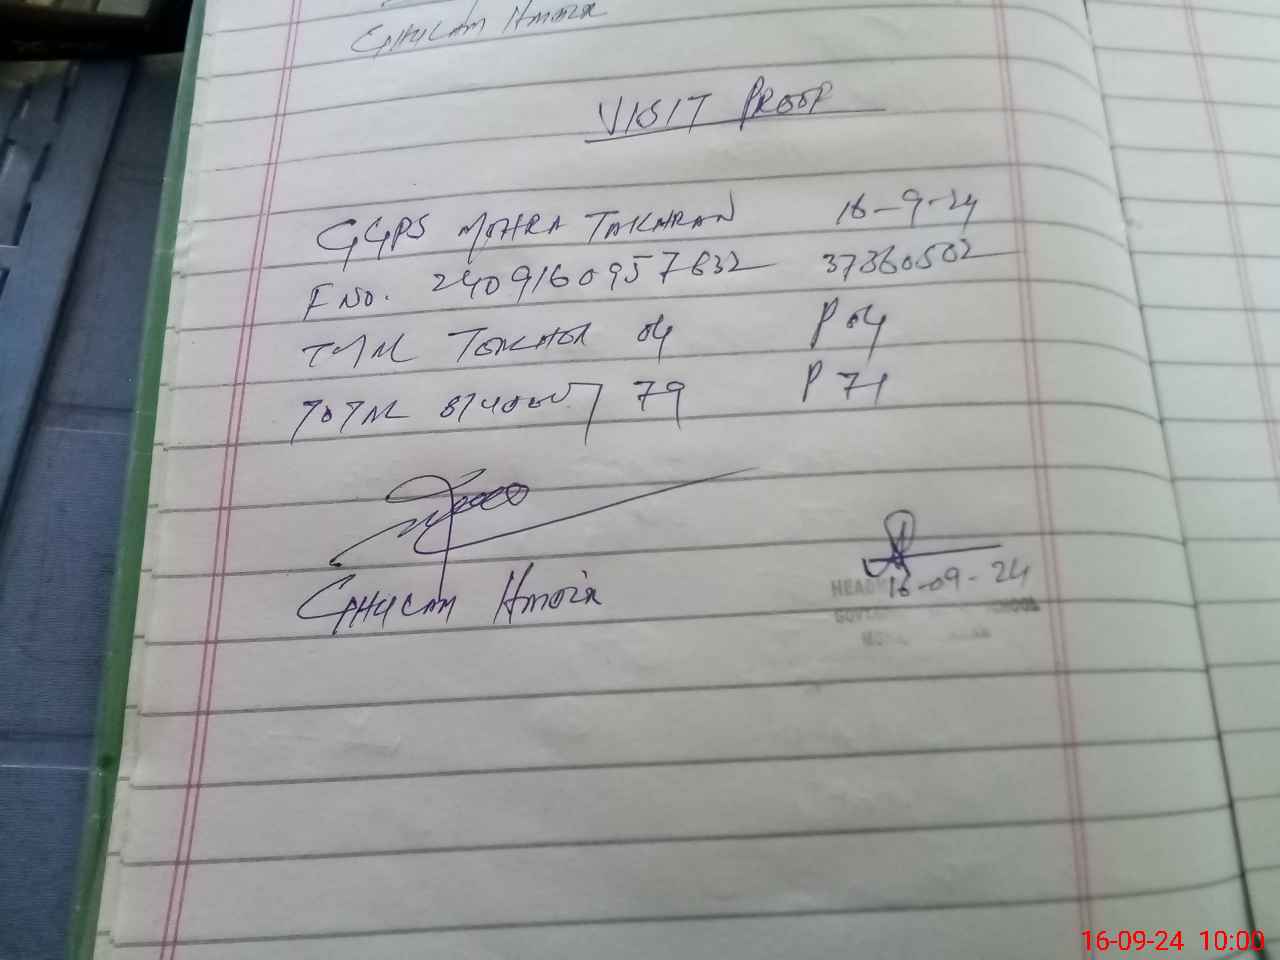 GHULAM HMOZA
VISIT PROOF
GGPS MOHRA TAKHRAN 16-9-24
F NO. 2409160957632 37360502
TOTAL TEACHER 04 P 04
TOTAL STUDENT 79 P 71
GHULAM HMOZA
16-09-24
HEAD
SCHOOL
16-09-24 10:00